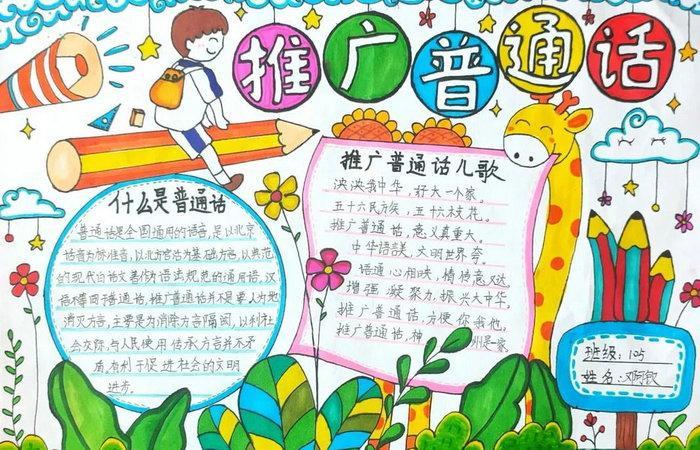 推广普通话
什么是普通话
普通话是全国通用的语言,是以北京
语音为标准音,以北方官话为基础方言,以典范
的现代白话文著作为语法规范的通用语。汉
语不等同于普通话,推广普通话并不是要人为地
消灭方言,主要是为消除方言隔阂,以利社
会交际,与人民使用传承方言并不矛
盾,有利于促进社会的文明
进步。
推广普通话儿歌
泱泱我中华,好大一个家。
五十六民族,五十六支花。
推广普通话,意义真重大。
中华语言美,文明世界夸。
语通心相映,情传意又达
增强凝聚力,振兴大中华。
推广普通话,方便你我他。
推广普通话,神州是一家
班级:105
姓名: